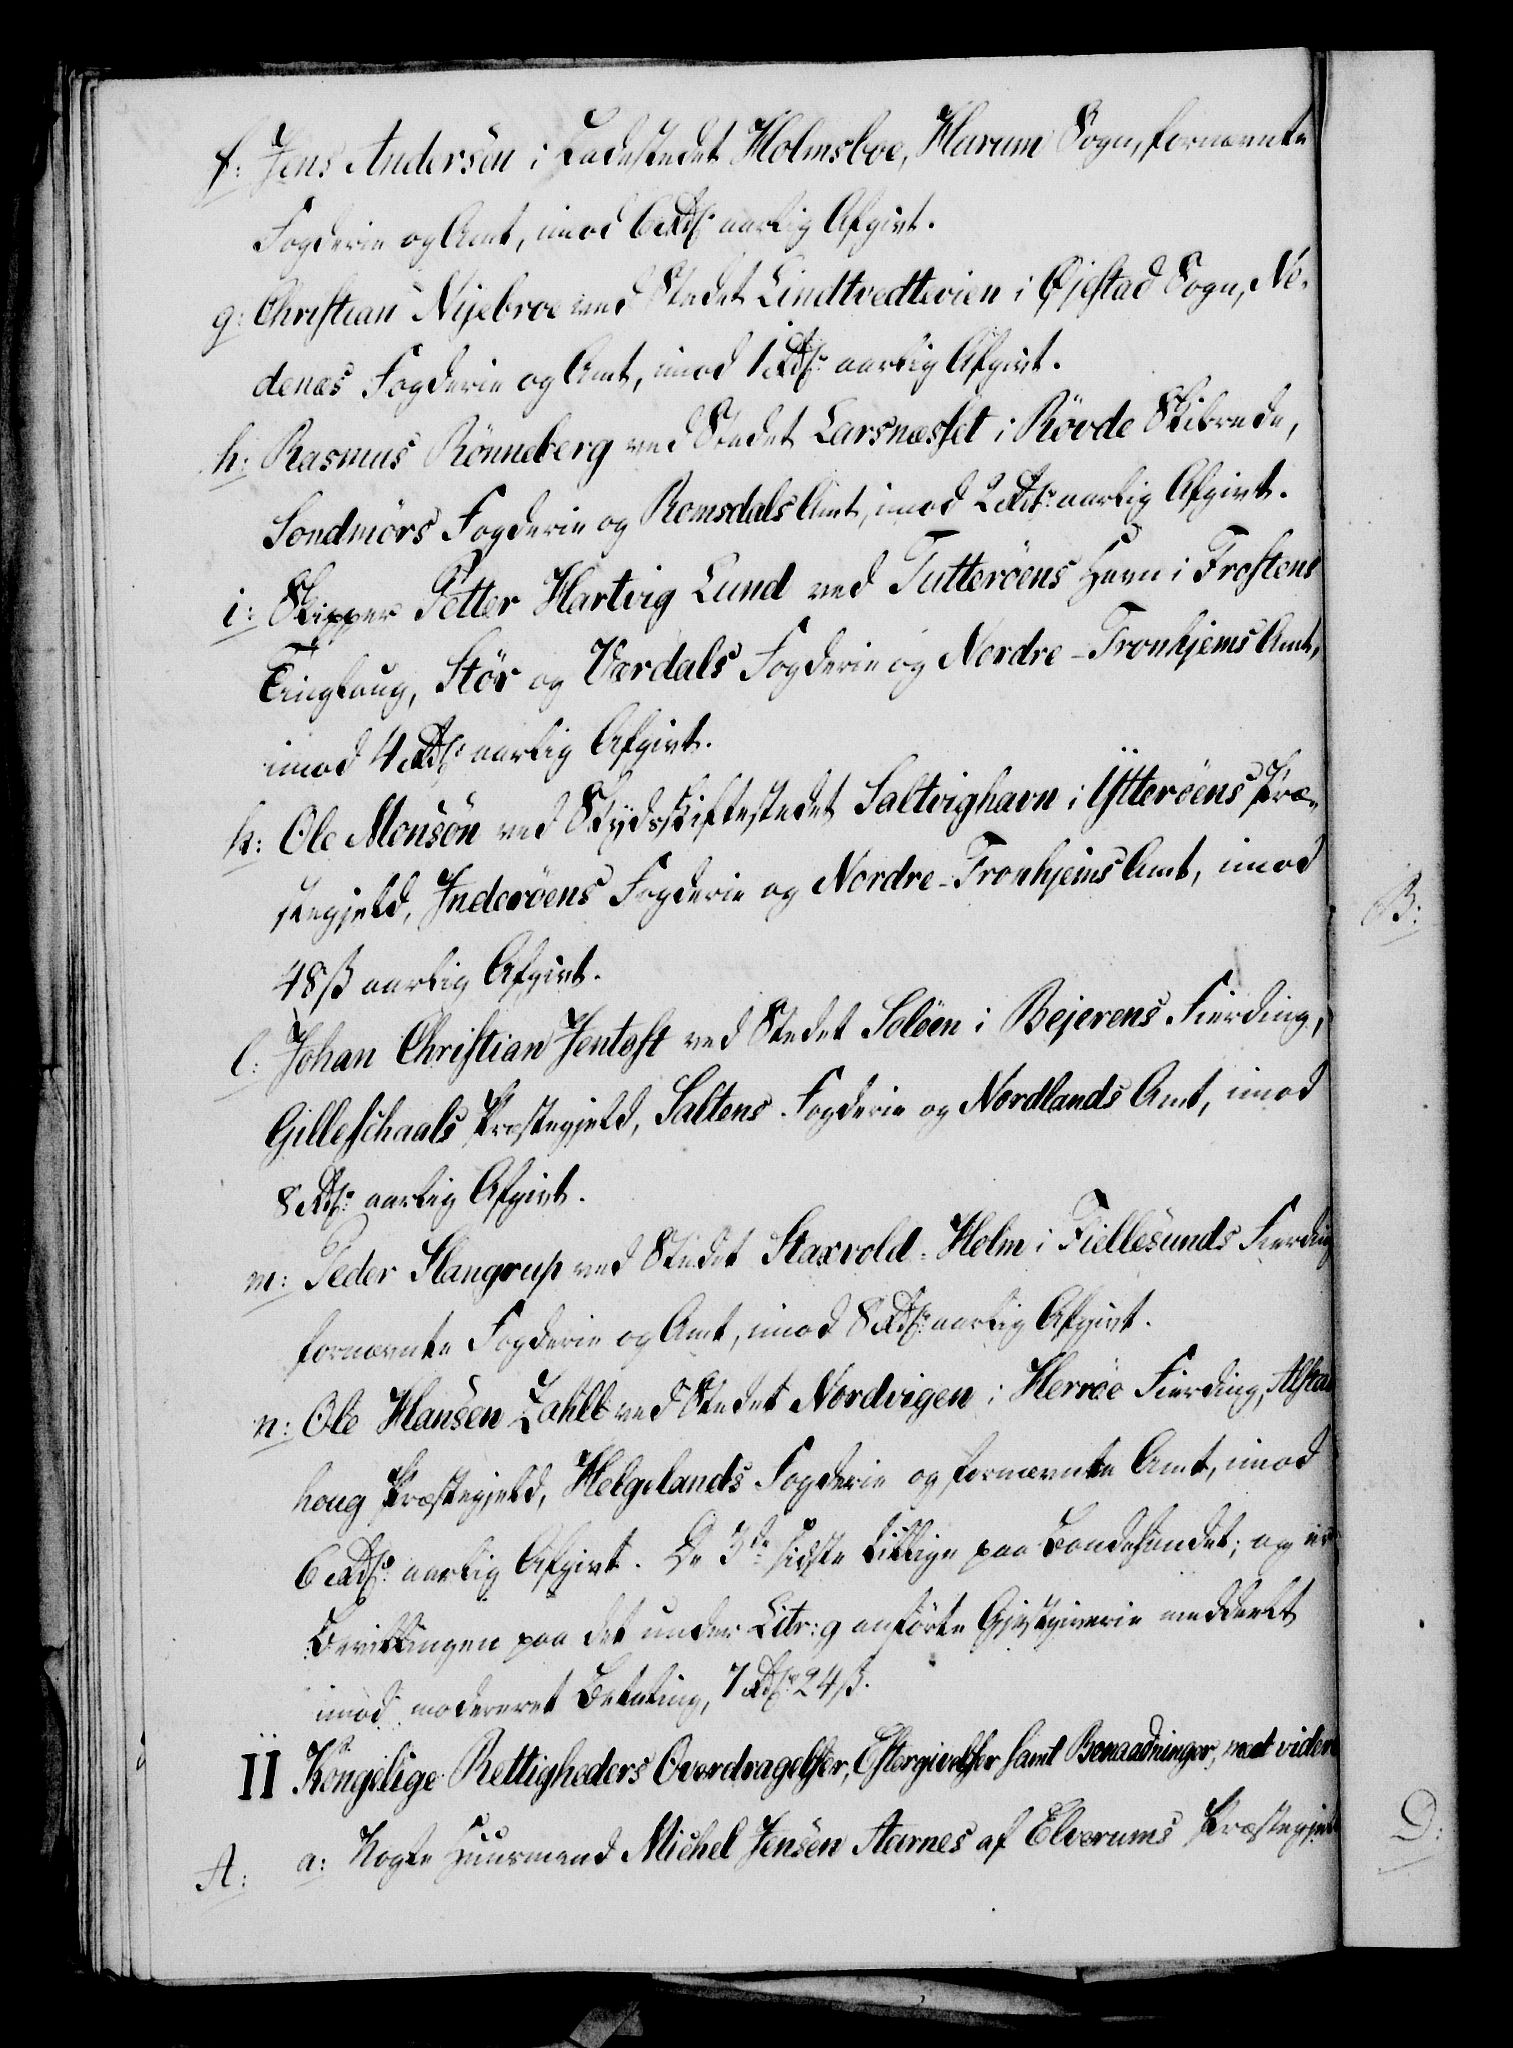 f: Jens Andersön i Ladestedet Holmsboe, Hurum Sogn, fornævnte
Fogderie og Amt, imod 6 Rdlr aarlig Afgivt.
g: Christian Nijebroe ved Stedet Lindtvedtevien i Øjestad Sogn, Ne-
denæs Fogderie og Amt, imod 1 Rdlr aarlig Afgivt.
h: Rasmus Rönneberg ved Stedet Larsnæsset i Rövde Skibrede,
Söndmörs Fogderie og Romsdals Amt, imod 2 Rdlr aarlig Afgivt.
i: Skipper Petter Hartvig Lund ved Tutteröens Havn i Frostens
Tinglaug, Stör og Værdals Fogderie og Nordre-Tronhjems Amt,
imod 4 Rdlr aarlig Afgivt.
k: Ole Monsön ved Skydsskiftestedet Saltvighavn i Ytteröens Præ-
stegjeld, Inderöens Fogderie og Nordre-Tronhjems Amt, imod
48 ß aarlig Afgivt.
l: Johan Christian Jentoft ved Stedet Solöen i Bejerens Fierding,
Gilleschaals Præstegjeld, Saltens Fogderie og Nordlands Amt, imod
8 Rdlr aarlig Afgivt.
m: Peder Slangrup ved Stedet Staxvold-Holm i Fiellesunds Fierding
fornævnte Fogderie og Amt, imod 8 Rdlr aarlig Afgivt.
n: Ole Hansen Zahll ved Stedet Nordvigen i Herröe Fierding, Alsta
houg Præstegjeld, Helgelands Fogderie og fornævnte Amt, imod
6 Rdlr aarlig Afgivt. De 3de sidste tillige paa Landhandel; og er
Bevillingen paa det under Litr: g anförte Gjæstgiverie meddeelt
imod modereret Betaling, 7 Rdlr 24 ß.
II Kongelige Rettigheders Overdragelser, Eftergivelser samt Benaadninger, med videre
A: a: Nogle Huusmænd Michel Jensen Aarnes af Elverums Præstegjel
B:
D: